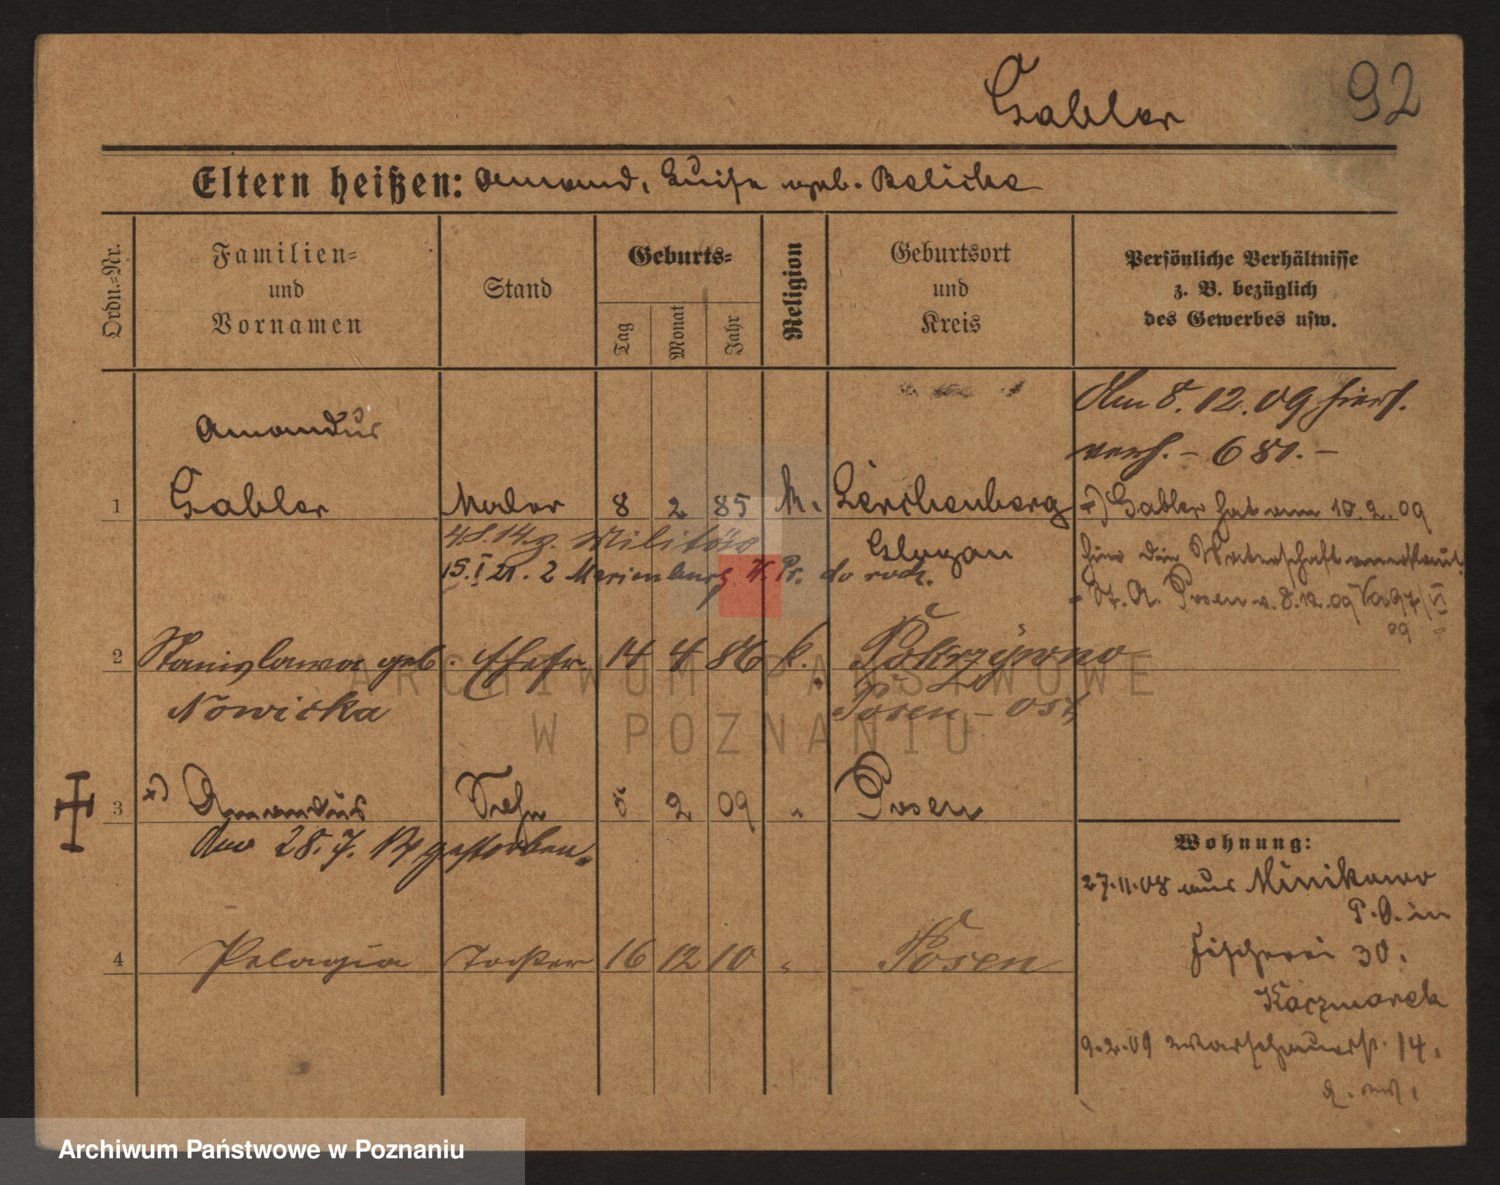 Gabler 92
Eltern heißen: Amand, Luise geb. Balicke
Ordn.-Nr.
Familien-
und
Vornamen
Stand
Geburts-
Tag
Monat
Jahr
Religion
Geburtsort
und
Kreis
Persönliche Verhältnisse
z. B. bezüglich
des Gewerbes usw.
Am 8. 12. 09 hiers.
verh. – 681. –
Amandus
1 Gabler Maler 8 2 85 K. Lerchenberg
Glogau
Militär
15. I 21. 2 Marienburg W. Pr.
x) Gabler hat am 10. 2. 09
hier die Vaterschaft anerkannt
St. A. Posen v. 8.12.09
2 Stanislawa geb. Ehefr. 14 4 86 k. Pokrzywno
Nowicka Posen – Ost
3 x) Amandus Sohn 5 2 09 " Posen
Am 28. 7. 14 gestorben.
4 Pelagia Tochter 16 12 10 " Posen
Wohnung:
27.11.08 aus Minikowo
P. O. in
Fischerei 30.
Kaczmarek
9.2.09 Warschauerstr. 14.
ARCHIWUM PAŃSTWOWE
W POZNANIU
Archiwum Państwowe w Poznaniu